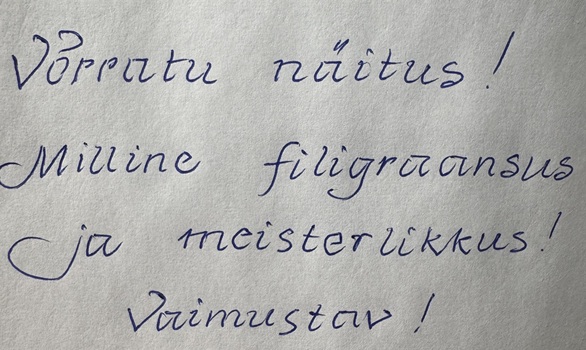 Võrratu näitus!
Milline filigraansus
ja meisterlikkus!
Vaimustav!